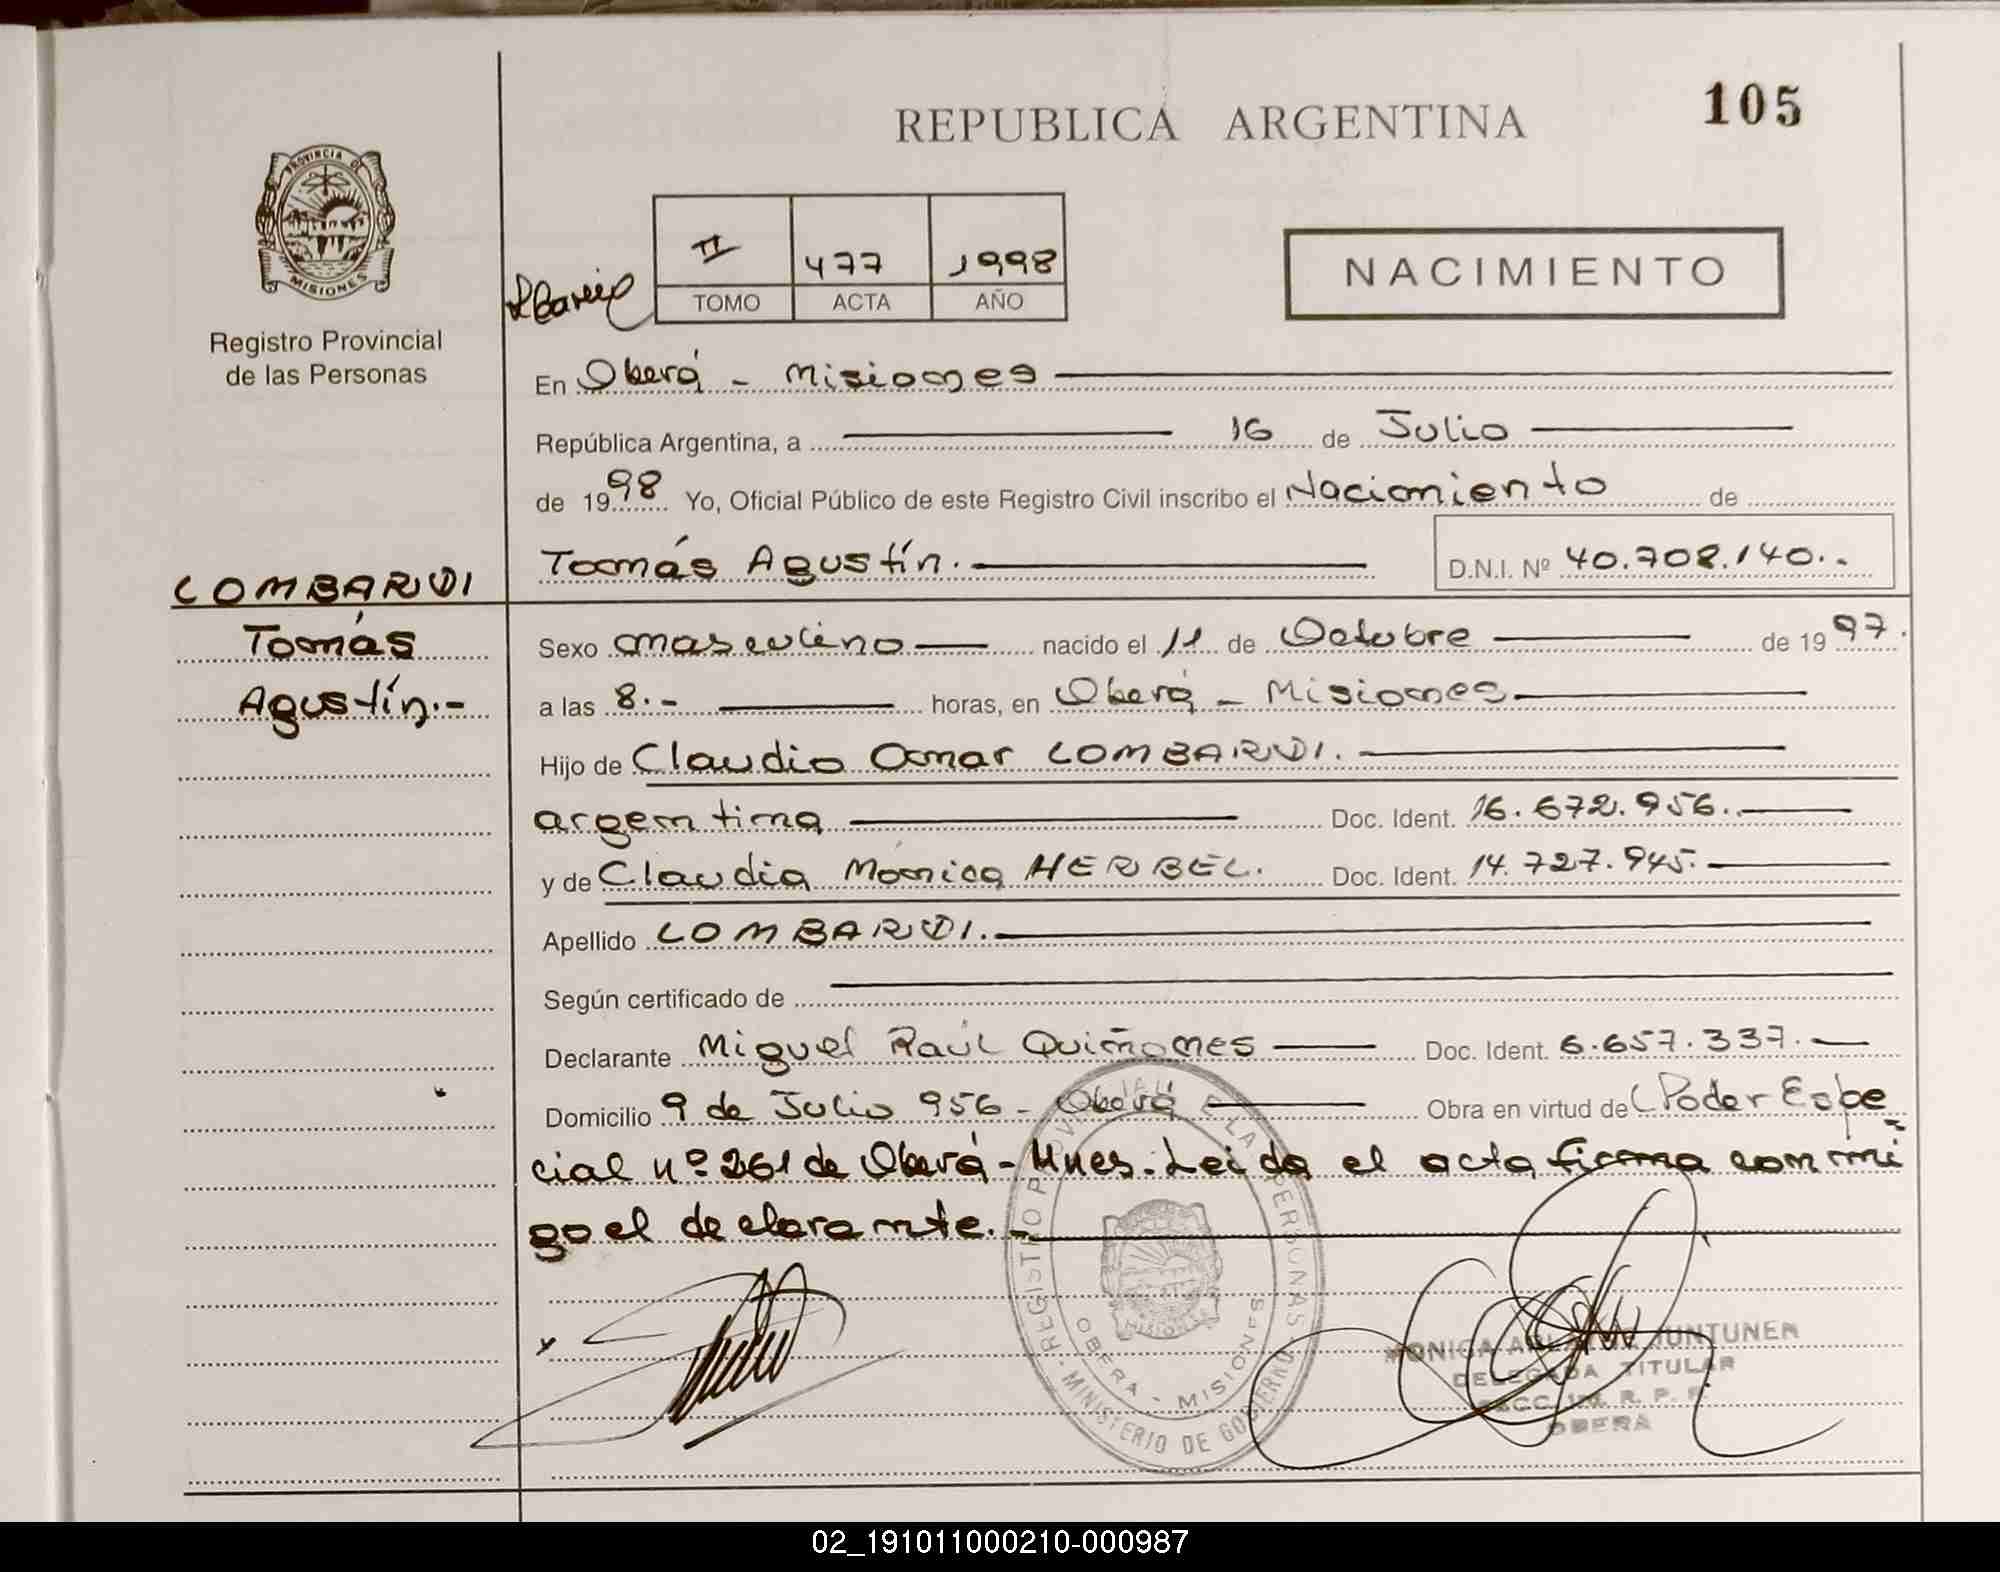 REPUBLICA ARGENTINA
105
PROVINCIA DE
MISIONES
Registro Provincial
de las Personas
II 477 1998
TOMO ACTA AÑO
NACIMIENTO
En Oberá - Misiones
República Argentina, a 16 de Julio
de 1998 Yo, Oficial Público de este Registro Civil inscribo el Nacimiento de
Tomás Agustín. D.N.I. Nº 40.708.140.-
LOMBARDI
Tomás
Agustín.-
Sexo masculino nacido el 11 de Octubre de 1997.
a las 8.- horas, en Oberá - Misiones
Hijo de Claudio Omar LOMBARDI.
argentina Doc. Ident. 16.672.956.
y de Claudia Mónica HERBEL. Doc. Ident. 14.727.945.
Apellido LOMBARDI.
Según certificado de
Declarante Miguel Raúl Quiñones Doc. Ident. 6.657.337.
Domicilio 9 de Julio 956 - Oberá Obra en virtud de Poder Espe
cial nº 261 de Oberá - Mnes. Leida el acta firma con mi
go el declarante.-
REGISTRO PROVINCIAL DE LAS PERSONAS
MINISTERIO DE GOBIERNO
OBERA - MISIONES
MISIONES
MONICA JUNTUNEN
DELEGADA TITULAR
R. P. P.
OBERA
02_191011000210-000987